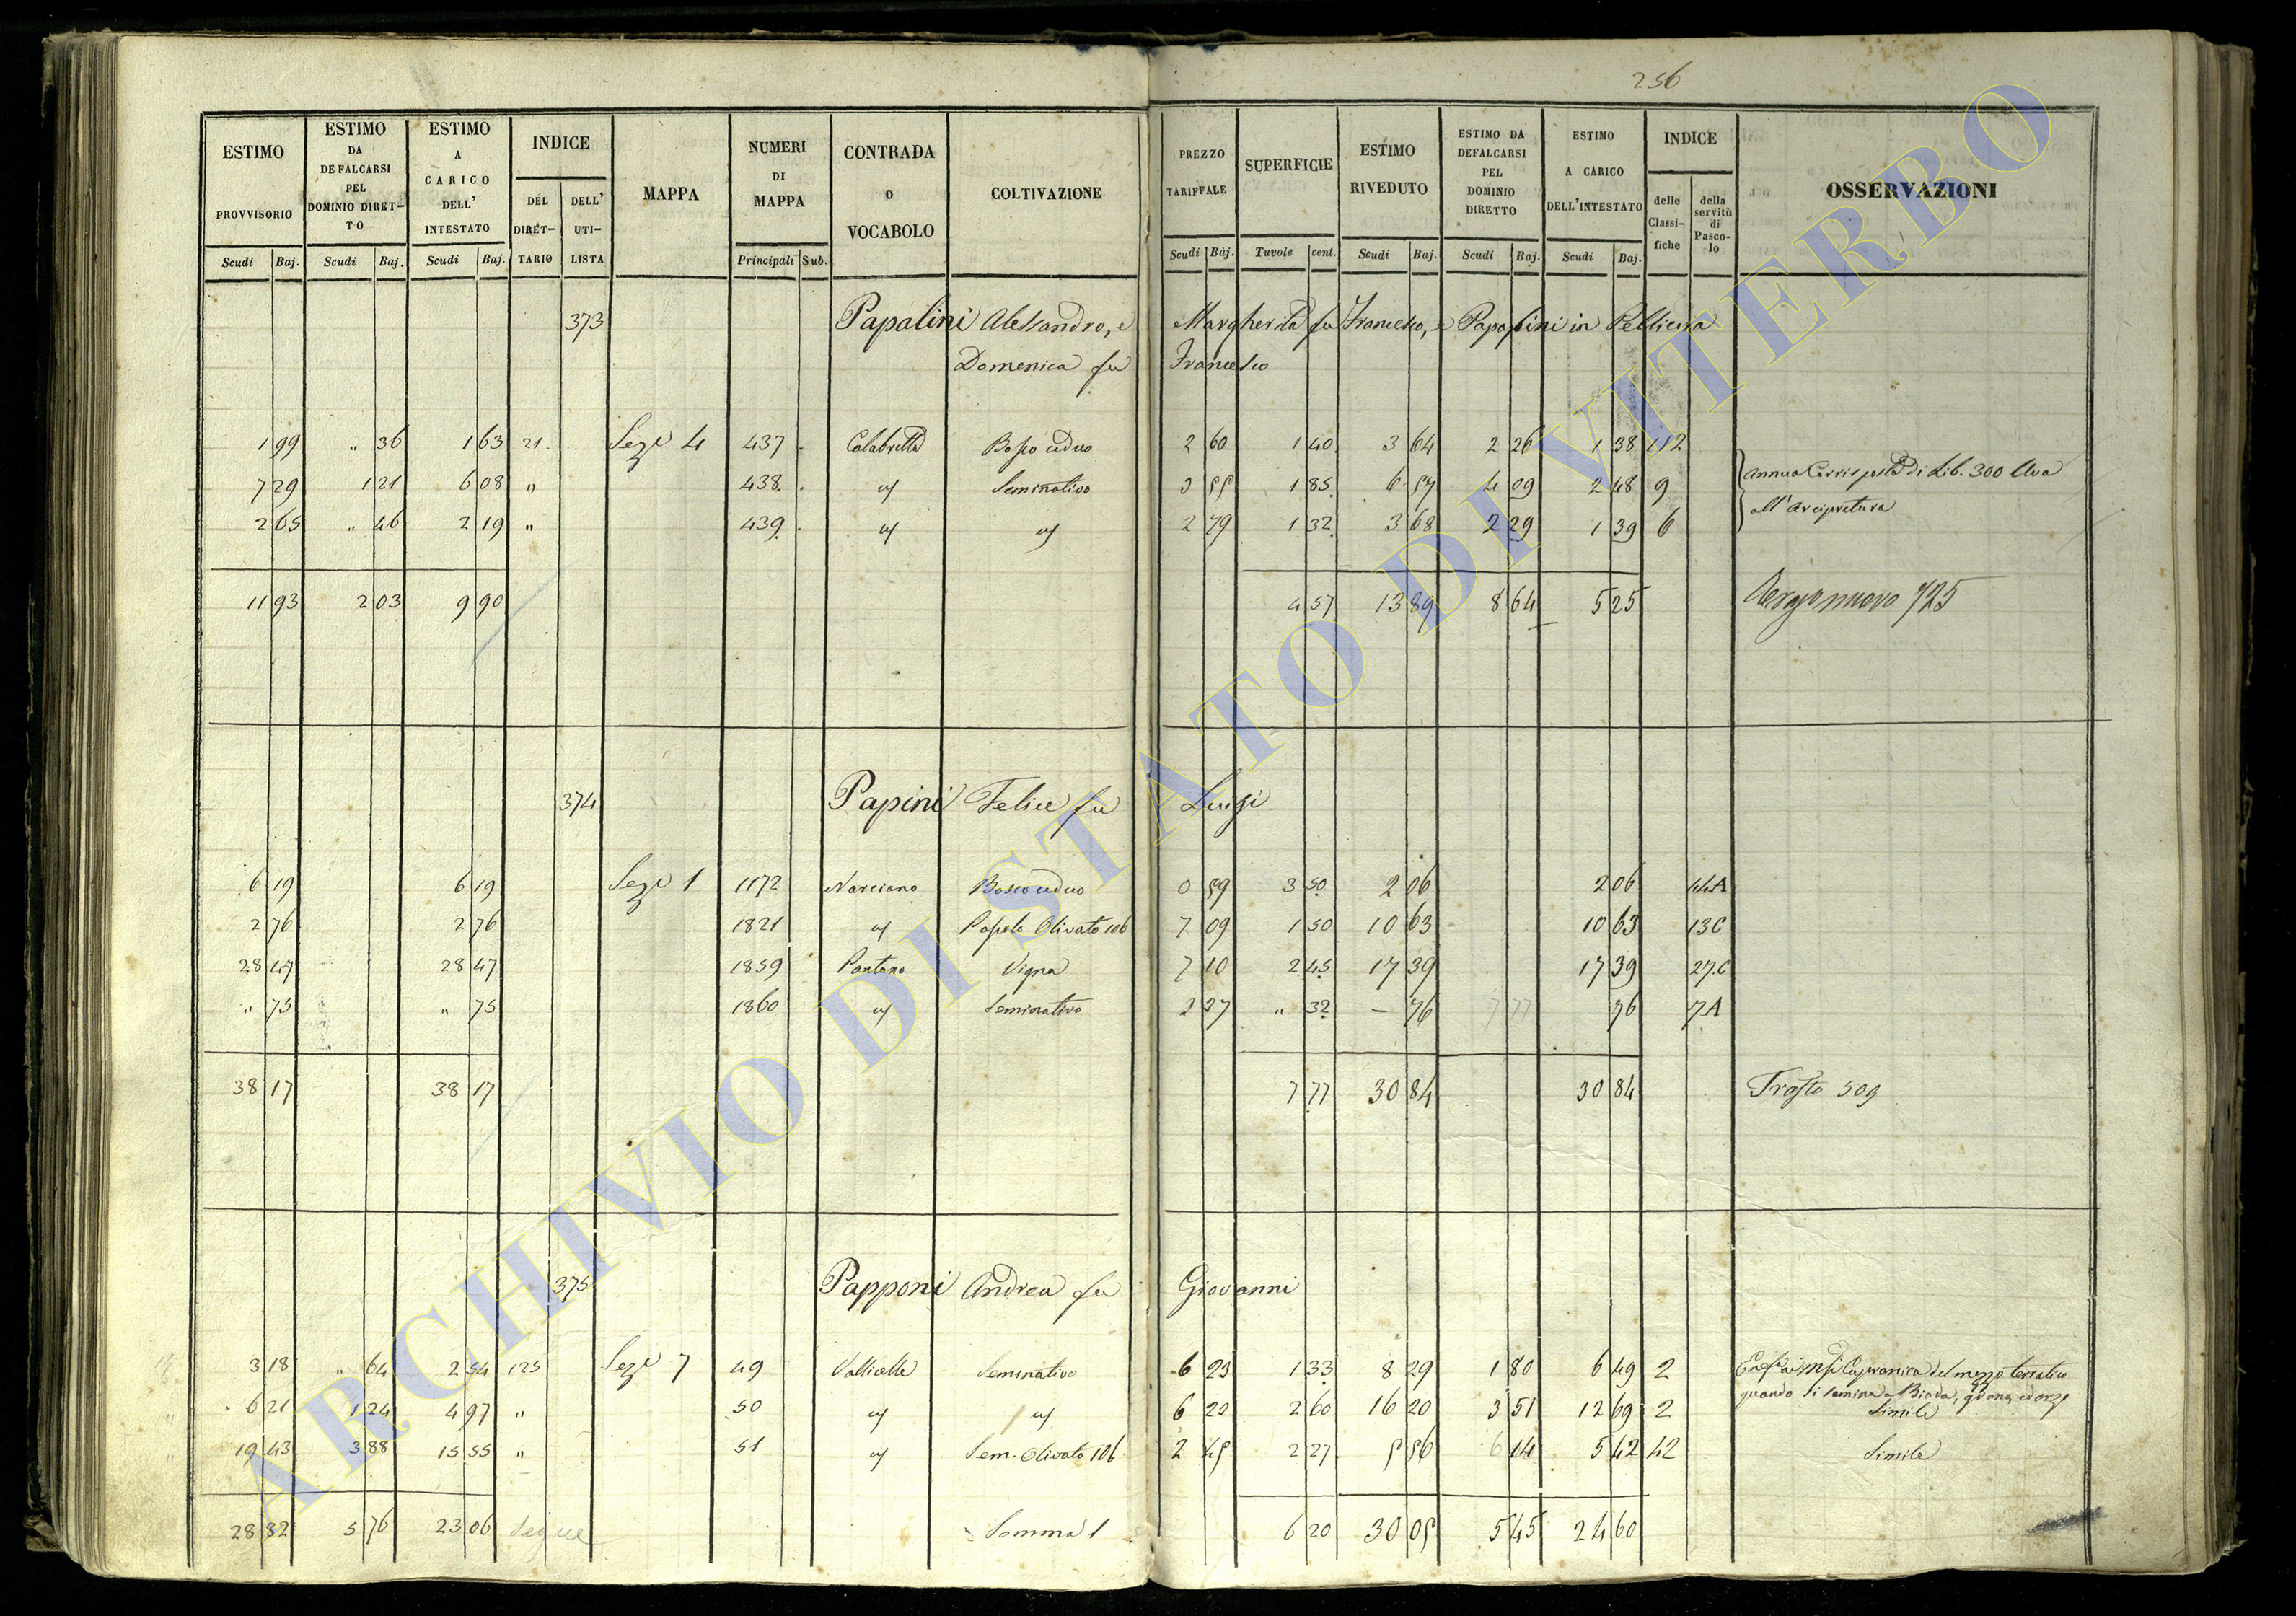 256
ESTIMO PROVVISORIO | ESTIMO DA DEFALCARSI PEL DOMINIO DIRETTO | ESTIMO A CARICO DELL' INTESTATO | INDICE DEL DIRETTARIO | DELL' UTILISTA | MAPPA | NUMERI DI MAPPA | CONTRADA O VOCABOLO | COLTIVAZIONE | PREZZO TARIFFALE | SUPERFICIE | ESTIMO RIVEDUTO | ESTIMO DA DEFALCARSI PEL DOMINIO DIRETTO | ESTIMO A CARICO DELL'INTESTATO | INDICE delle Classifiche | della servitù di Pascolo | OSSERVAZIONI
Scudi Baj. | Scudi Baj. | Scudi Baj. | Principali Sub. | Scudi Baj. | Tavole cent. | Scudi Baj. | Scudi Baj. | Scudi Baj.
373 Papalini Alessandro, e Margherita fu Francesco, e Papalini in Pelliccia
Domenica fu Francesco
1 99 | " 36 | 1 63 | 21 | Seze 4 | 437 | Calabrella | Bosco ceduo | 2 60 | 1 40 | 3 64 | 2 26 | 1 38 | 112
7 29 | 1 21 | 6 08 | " | 438 | " | Seminativo | 3 55 | 1 85 | 6 57 | 4 09 | 2 48 | 9 | annua Corrisposta di Lib. 300 Uva
2 65 | " 46 | 2 19 | " | 439 | " | " | 2 79 | 1 32 | 3 68 | 2 29 | 1 39 | 6 | all'Arcipretura
11 93 | 2 03 | 9 90 | 4 57 | 13 89 | 8 64 | 5 25 | nuovo 725
374 Papini Felice fu Luigi
6 19 | 6 19 | Seze 1 | 1172 | Narciano | Bosco ceduo | 0 59 | 3 50 | 2 06 | 2 06 | 44A
2 76 | 2 76 | 1821 | " | Olivato 106 | 7 09 | 1 50 | 10 63 | 10 63 | 13C
28 47 | 28 47 | 1859 | Pantano | Vigna | 7 10 | 2 45 | 17 39 | 17 39 | 27.C
" 75 | " 75 | 1860 | " | Seminativo | 2 27 | " 32 | – 76 | 7 77 | 76 | 7A
38 17 | 38 17 | 7 77 | 30 84 | 30 84 | Trasto 509
375 Papponi Andrea fu Giovanni
3 18 | " 64 | 2 54 | 125 | Seze 7 | 49 | Vallicelle | Seminativo | 6 23 | 1 33 | 8 29 | 1 80 | 6 49 | 2 | Capranica del mezzo terratico
quando si semina a Biada, ed orzo
6 21 | 1 24 | 4 97 | " | 50 | " | " | 6 23 | 2 60 | 16 20 | 3 51 | 12 69 | 2 | Simile
19 43 | 3 88 | 15 55 | " | 51 | " | Sem. Olivato 106 | 2 45 | 2 27 | 5 56 | 14 | 5 42 | 42 | Simile
28 82 | 5 76 | 23 06 | Segue | Somma 1 | 6 20 | 30 05 | 5 45 | 24 60
ARCHIVIO DI STATO DI VITERBO